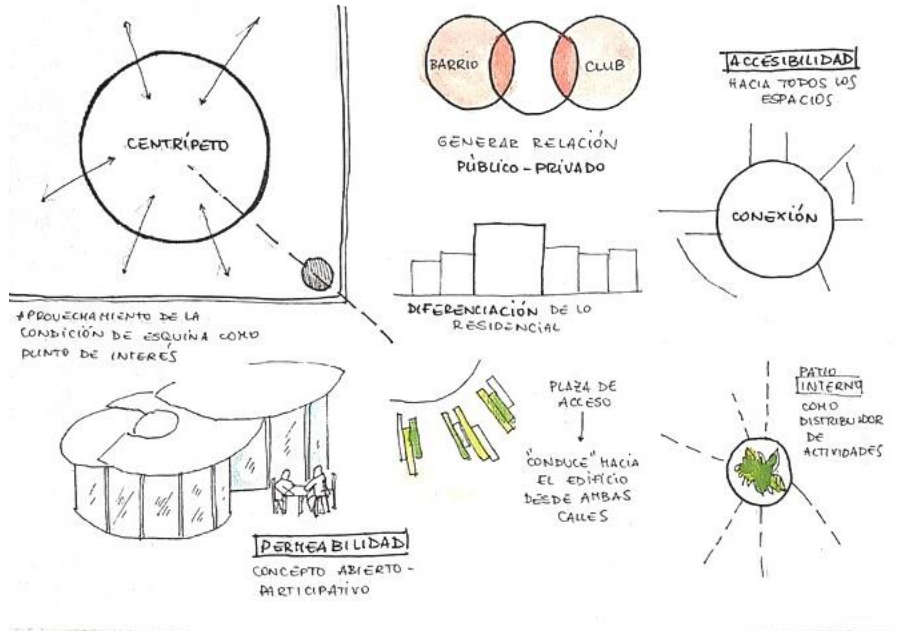 CENTRÍPETO
APROVECHAMIENTO DE LA
CONDICIÓN DE ESQUINA COMO
PUNTO DE INTERÉS
BARRIO
CLUB
GENERAR RELACIÓN
PÚBLICO-PRIVADO
ACCESIBILIDAD
HACIA TODOS LOS
ESPACIOS
CONEXIÓN
DIFERENCIACIÓN DE LO
RESIDENCIAL
PERMEABILIDAD
CONCEPTO ABIERTO-
PARTICIPATIVO
PLAZA DE
ACCESO
"CONDUCE" HACIA
EL EDIFICIO
DESDE AMBAS
CALLES
PATIO
INTERNO
COMO
DISTRIBUIDOR
DE
ACTIVIDADES